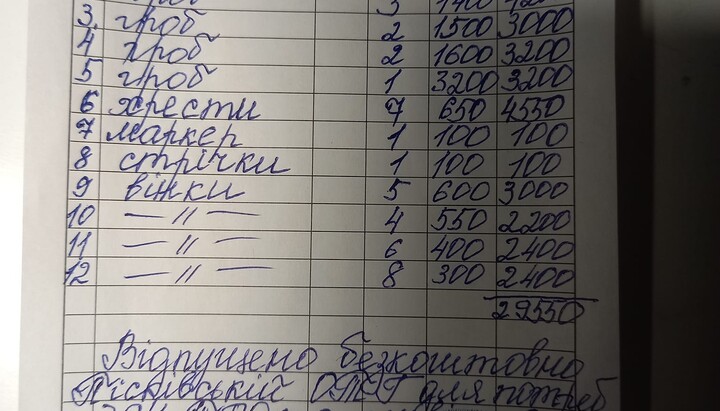 3. гроб 2 1500 3000
4 гроб 2 1600 3200
5 гроб 1 3200 3200
6 хрести 7 650 4550
7 маркер 1 100 100
8 стрічки 1 100 100
9 вінки 5 600 3000
10 — // — 4 550 2200
11 — // — 6 400 2400
12 — // — 8 300 2400
29550
Відпущено безкоштовно
Пісківській ОТГ для потреб